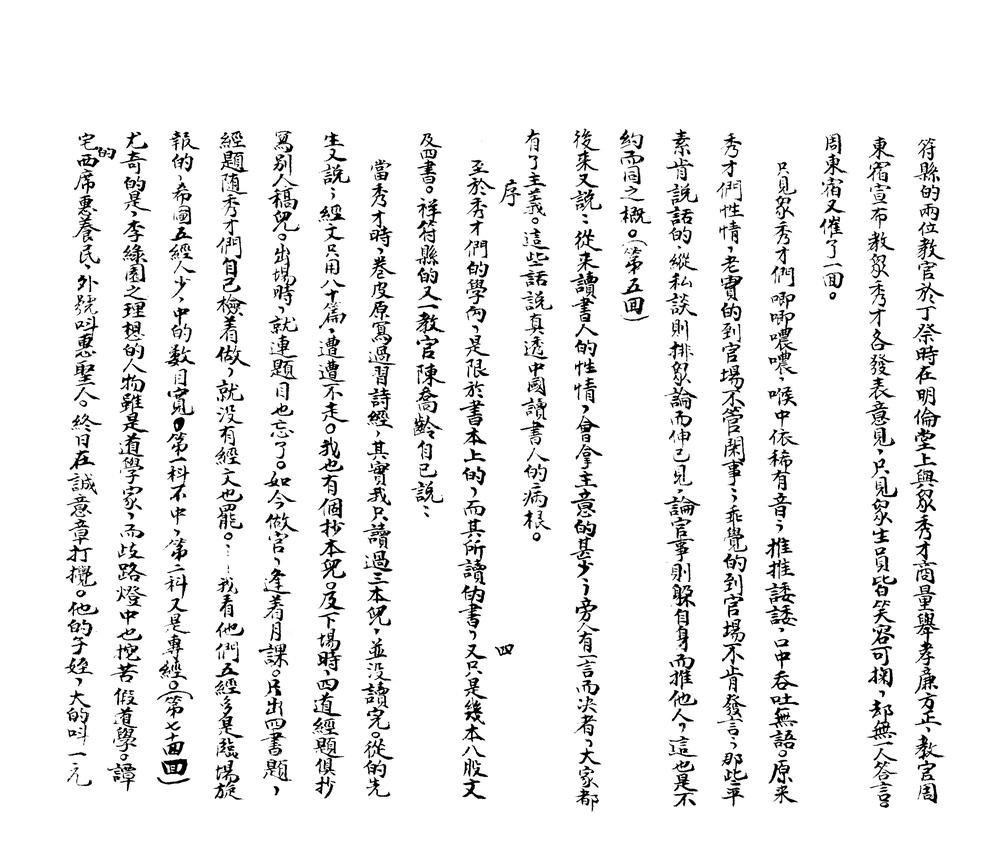 符縣的兩位教官於丁祭時在明倫堂上與衆秀才商量舉孝廉方正，教官周
東宿宣布教衆秀才各發表意見，只見衆生員皆笑容可掬，却無一人答言。
周東宿又催了一回。
只見衆秀才們唧唧噥噥，喉中依稀有音，推推諉諉，口中吞吐無語。原來
秀才們性情，老實的到官場不管閑事；乖覺的到官場不肯發言；那些平
素肯說話的縱私談則排衆論而伸己見，論官事則躲自身而推他人，這也是不
約而同之概。（第五回）
後來又說：從來讀書人的性情，會拿主意的甚少，旁人有一言而决者，大家都
有了主義。這些話說真透中國讀書人的病根。
序
四
至於秀才們的學問，是限於書本上的，而其所讀的書，又只是幾本八股文
及四書。祥符縣的又一教官陳喬齡自己說：
當秀才時，卷皮原寫過習詩經，其實我只讀過三本兒，並没讀完。從的先
生又說；經文只用八十篇，遭遭不走。我也有個抄本兒。及下場時，四道經題俱抄
寫別人稿兒。出場時，就連題目也忘了。如今做官，逢着月課。只出四書題，
經題隨秀才們自己檢着做，就没有經文也罷。…我看他們五經多是臨場旋
報的，希圖五經人少，中的数目寬。第一科不中，第二科又是專經。（第七回）
尤奇的是，李綠園之理想的人物雖是道學家，而歧路燈中也挖苦假道學。譚
宅的西席惠養民，外號叫惠聖人。終日在誠意章打攪。他的子姪，大的叫一元